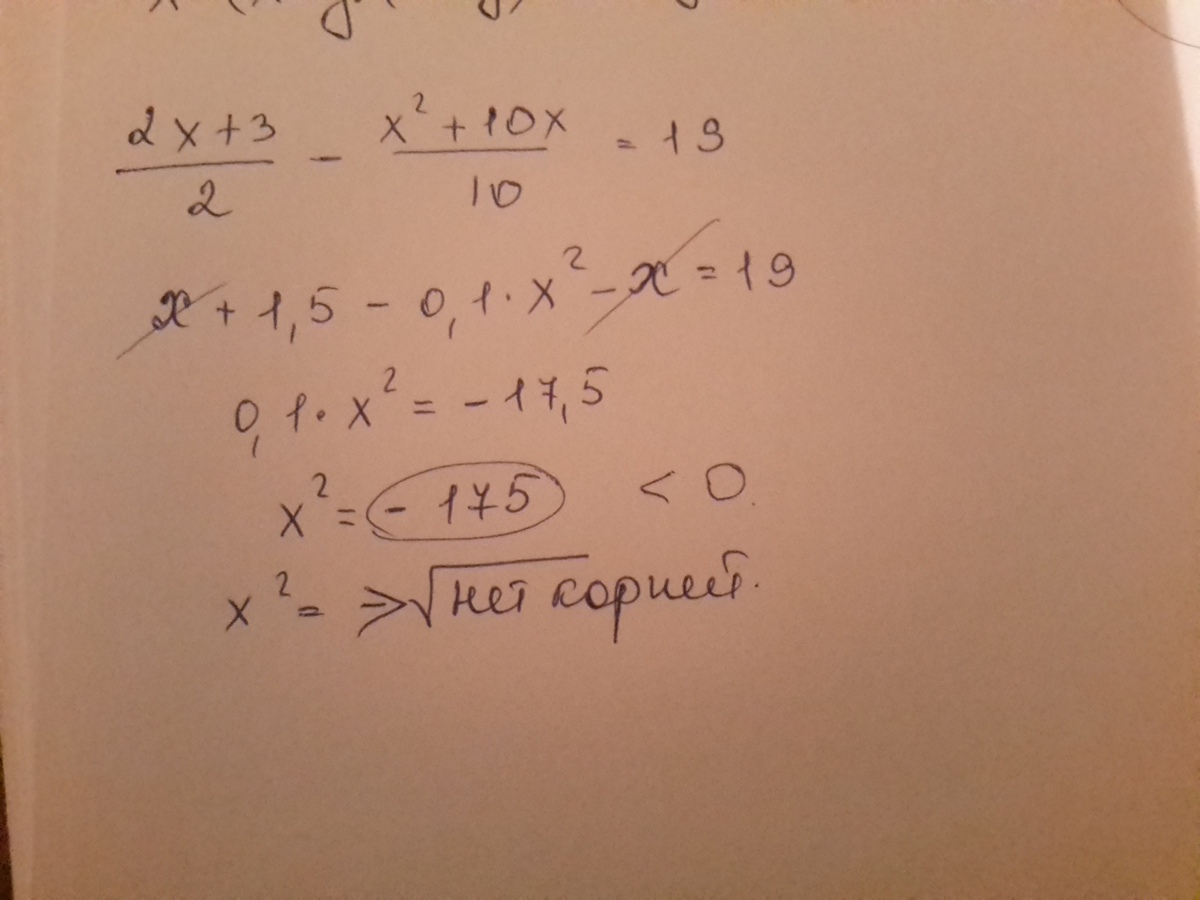 2x+3 / 2 - x²+10x / 10 = 19
x + 1,5 - 0,1·x² - x = 19
0,1·x² = -17,5
x² = -175 < 0
x² = ⇒ √нет корней.